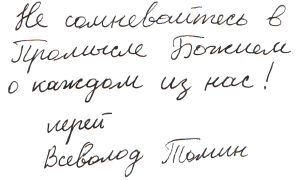 Не сомневайтесь в
Промысле Божием
о каждом из нас!
иерей
Всеволод Томин